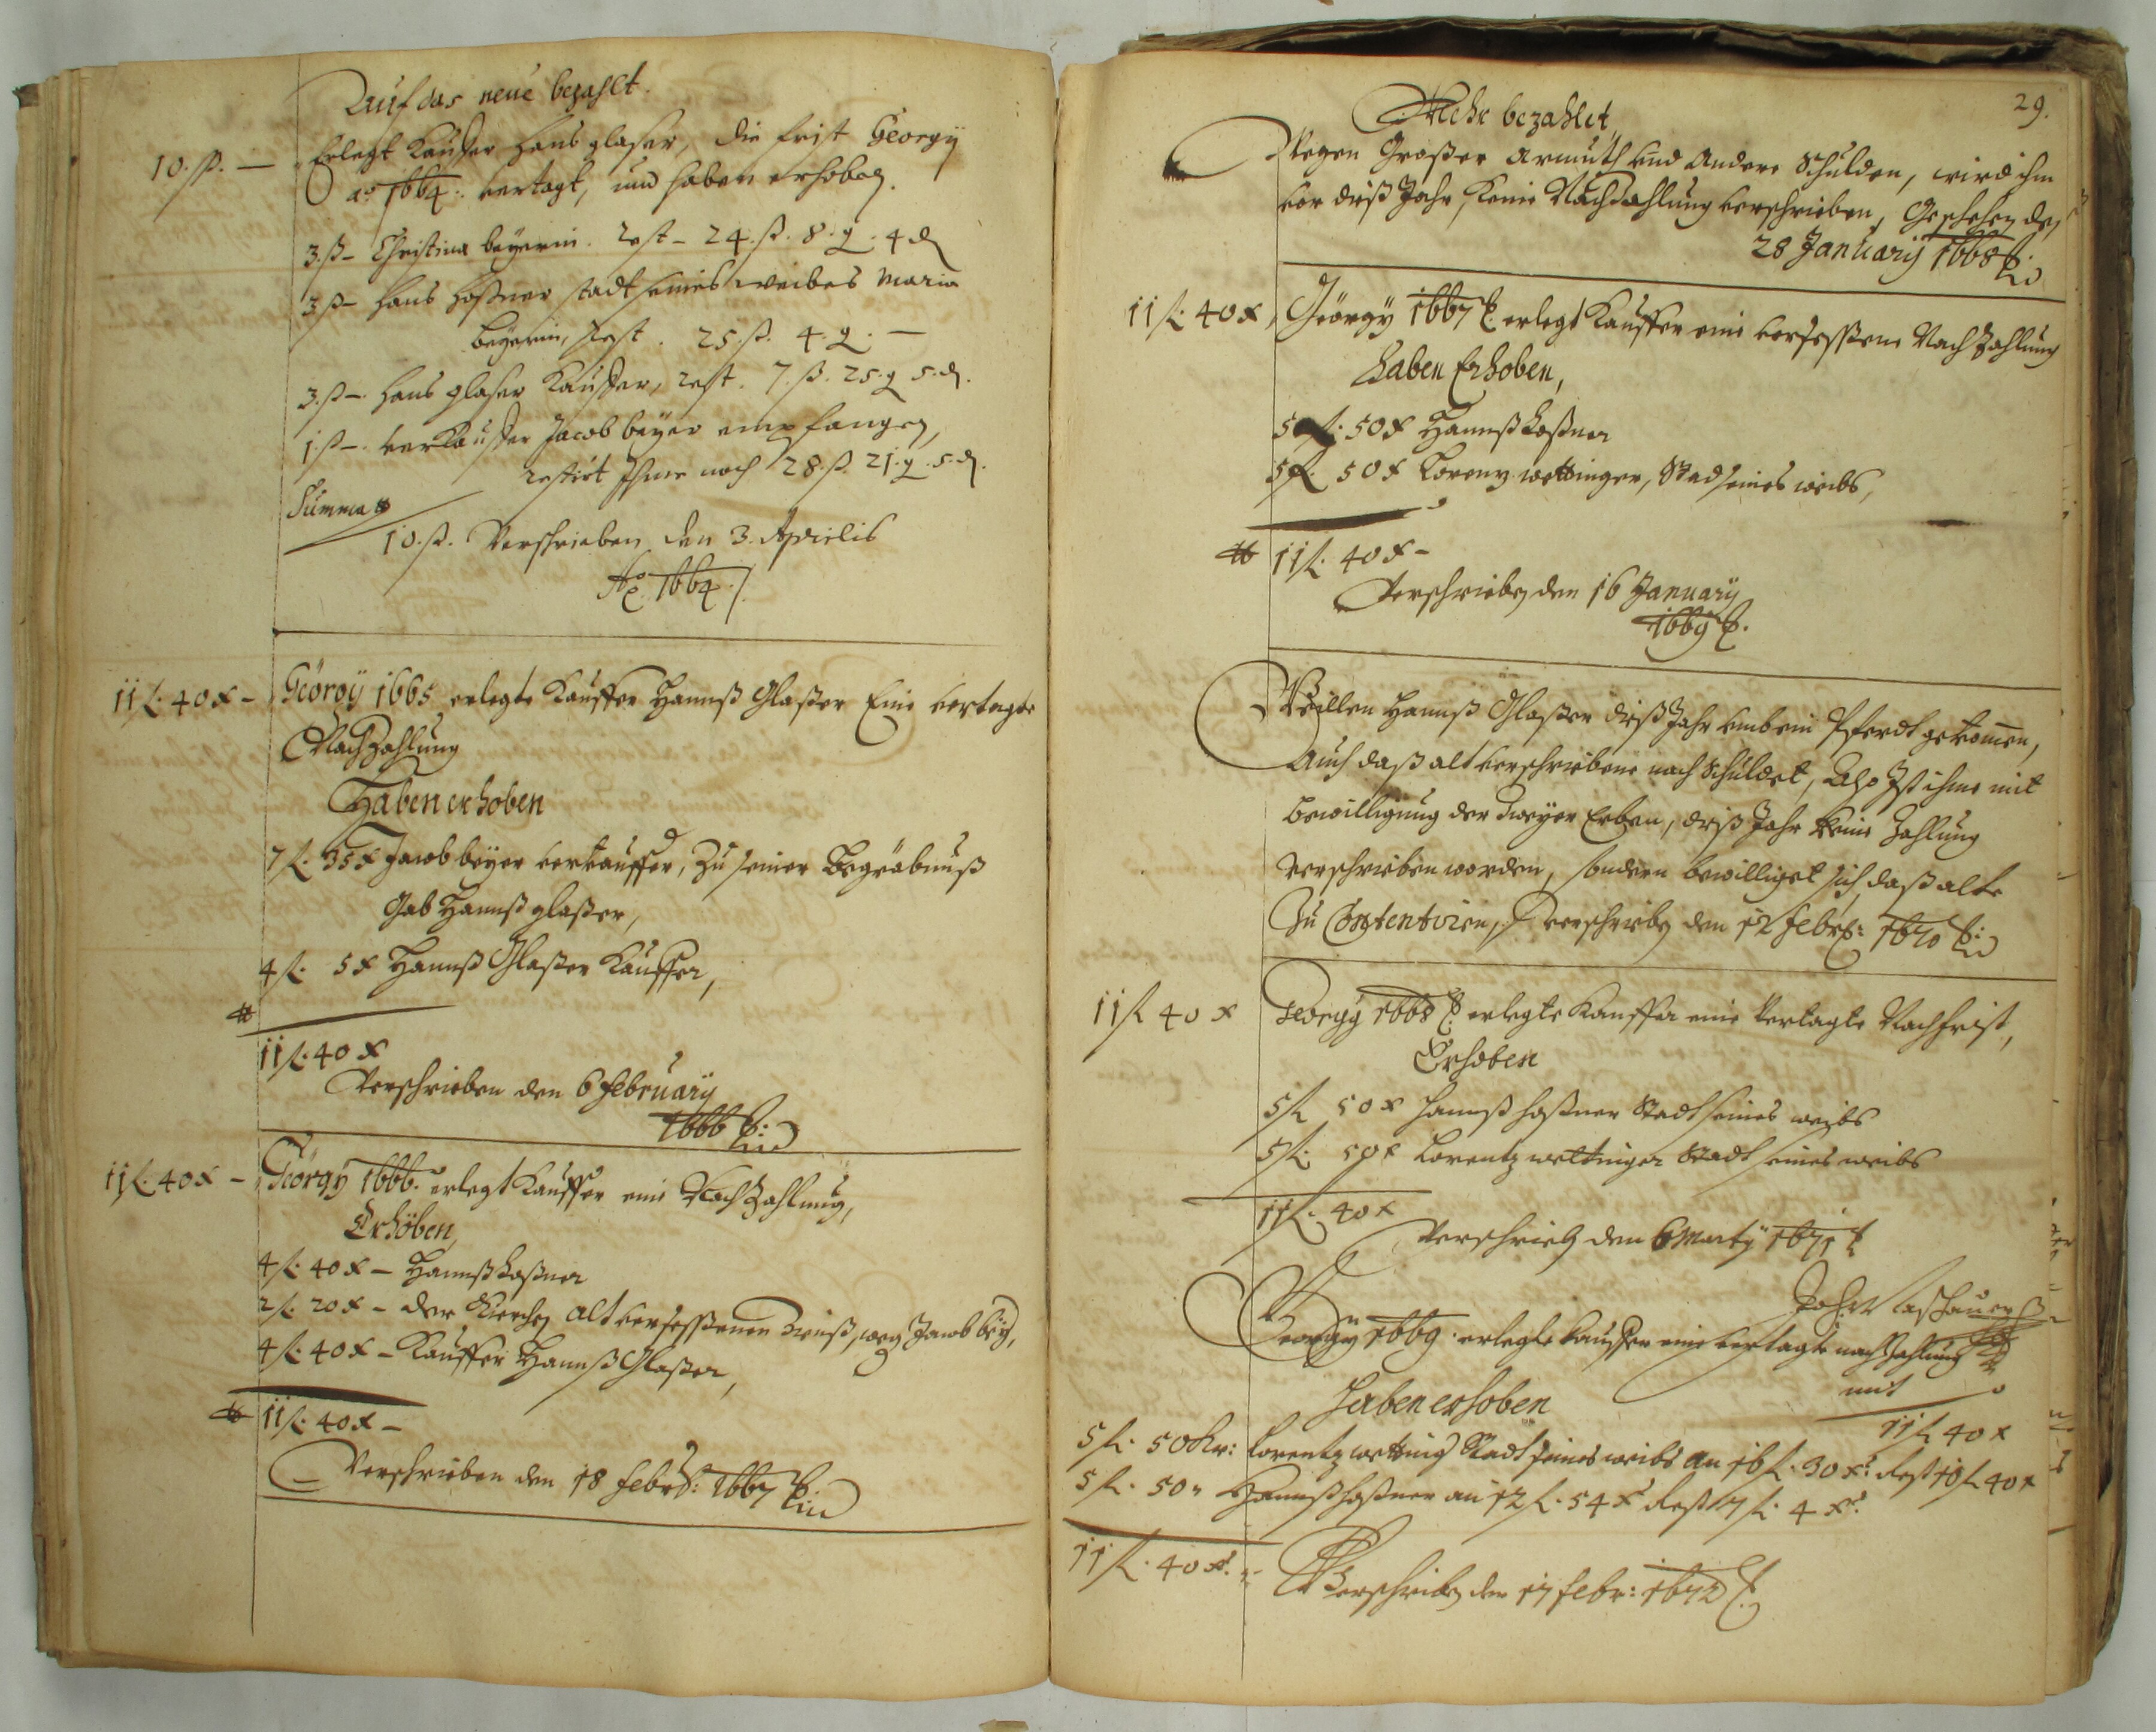 Auf das neue bezahlt.
10. ß. — Erlegt Kauffer Hans glaser, die frist Georgy
ao 1664. vertagt, und haben erhoben.
3. ß – Christina beyerin. rest – 24. ß. 8. g. 4 d
3 ß – Hans Hoßner stadt seines weibes Maria
beyerin, rest. 25. ß. 4. g. —
3. ß –. Hans glaser Kauffer, rest. 7. ß. 25. g 5. d.
1. ß –. verkauffer Jacob beyer empfangen,
restirt Ihme noch 28. ß. 21. g. 5. d.
Summa
10. ß. Verschrieben den 3. Aprilis
Ao 1664.
11 fl. 40 x – Geörgÿ 1665 erlegte Kauffer Hannß Glaßer Eine vertagte
NachZahlung
Haben erhoben
7 fl. 35 x Jacob beyer verkauffer, Zu seiner Begräbnuß
Gab Hannß glaßer,
4 fl. 5 x Hannß Glaßer Kauffer,
11 fl. 40 x
Verschrieben den 6 February
1666
11 fl. 40 x – Geörgÿ 1666. erlegt Kauffer eine NachZahlung,
Erhoben,
4 fl. 40 x – Hannß Hoßner
2 fl. 20 x – der Kierchen alt versessenen Zinß, weg Jacob bey,
4 fl. 40 x – Kauffer Hannß Glaßer,
11 fl. 40 x –
Verschrieben den 18 Febr: 1667
29.
Mehr bezahlet
Wegen Großer Armuth und Andere Schulden, wird ihm
vor diß Jahr, keine Nachzahlung verschrieben, Geschehen den
28 January 1668
11 fl. 40 x, Geörgy 1667 erlegt Kauffer eine versessene NachZahlung
Haben Erhoben,
5 fl. 50 x Hannß Hoßner
5 fl. 50 x Lorenz wettinger, Stad seines weibs,
11 fl. 40 x –
Verschrieben den 16 January
1669
Weillen Hannß Glaßer diß Jahr umb ein Pferdt gekommen,
Auch daß alt verschriebene noch Schuldet, Also Ist ihme mit
Bewilligung der Beyer Erben, diß Jahr keine Zahlung
verschrieben worden, sondern bewilliget sich daß alte
Zu Contentiren, verschrieben den 12 Febr: 1670
11 fl 40 x Georgy 1668 erlegte Kauffer eine Vertagte Nachfrist,
Erhoben
5 fl 50 x Hannß Hoßner Stadt seines weibs
5 fl. 50 x Lorentz wettinger Stadt seines weibs
11 fl. 40 x
Verschrieben den 6 Marty 1671
Georgy 1669. erlegte Kauffer eine vertagte nachZahlung
mit
11 fl 40 x
Haben erhoben
5 fl. 50 kr: Lorentz wetting Stadt seines weibs an 16 fl. 30 x: Rest 10 fl 40 x
5 fl. 50 " Hannß Hoßner an 12 fl. 54 x Rest 7 fl. 4 x:
11 fl. 40 x.
Verschrieben den 17 Febr: 1672